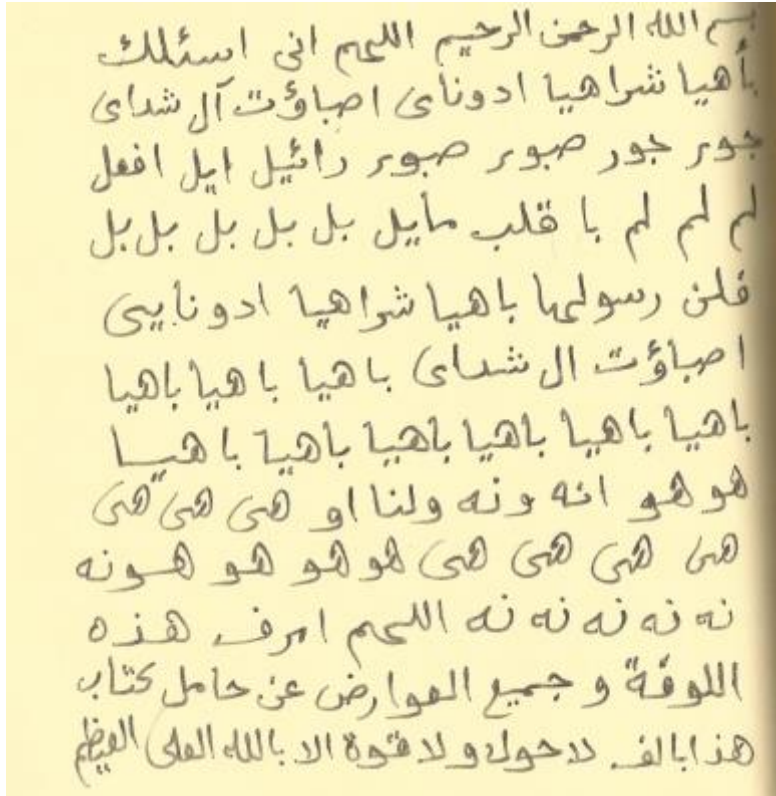 بسم الله الرحمن الرحيم اللهم انى اسئلك
بأهيا شراهيا ادوناى اصباؤت آل شداى
جور جور صبور صبور رائيل ايل افعل
لم لم لم با قلب مايل بل بل بل بل بل
فلن رسولها باهيا شراهيا ادونايى
اصباؤت ال شداى باهيا باهيا باهيا
باهيا باهيا باهيا باهيا باهيا باهيا
هو هو انه ونه ولنا او هى هى هى
هى هى هى هى هو هو هو هونه
نه نه نه نه نه اللهم اصرف هذه
اللوقة و جميع العوارض عن حامل كتاب
هذا بالف لاحول ولا قوة الا بالله العلى العيظم